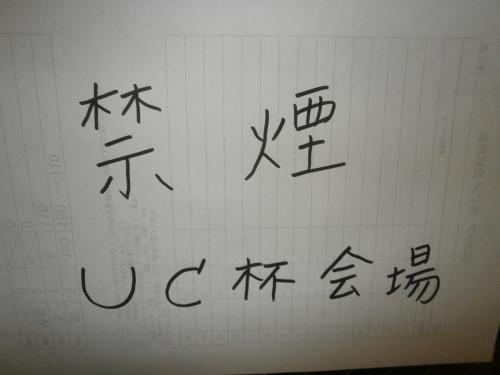 禁煙
UC杯会場